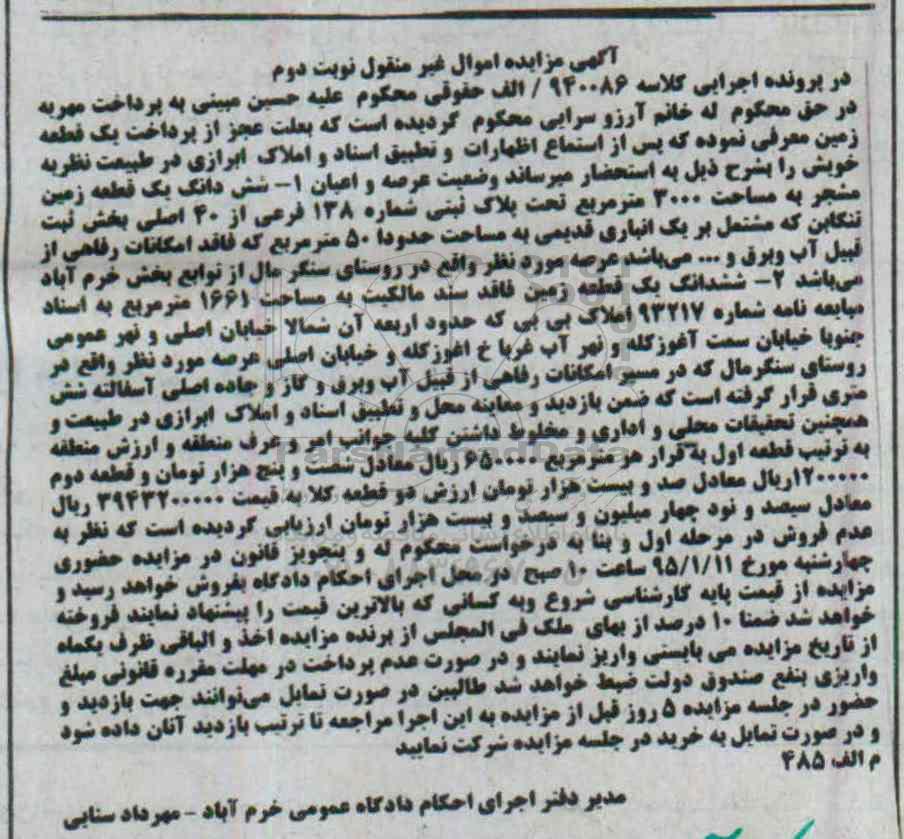 آگهی مزایده اموال غیر منقول نوبت دوم
در پرونده اجرایی کلاسه ۹۴۰۰۸۶ / الف حقوقی محکوم علیه حسین مبینی به پرداخت مهریه
در حق محکوم له خانم آرزو سرایی محکوم گردیده است که بعلت عجز از پرداخت یک قطعه
زمین معرفی نموده که پس از استماع اظهارات و تطبیق اسناد و املاک ابرازی در طبیعت نظریه
خویش را بشرح ذیل به استحضار میرساند وضعیت عرصه و اعیان ۱- شش دانگ یک قطعه زمین
مشجر به مساحت ۳۰۰۰ مترمربع تحت پلاک ثبتی شماره ۱۳۸ فرعی از ۴۰ اصلی بخش ثبت
تنکابن که مشتمل بر یک انباری قدیمی به مساحت حدودا ۵۰ مترمربع که فاقد امکانات رفاهی از
قبیل آب وبرق و ... می‌باشد عرصه مورد نظر واقع در روستای سنگر مال از توابع بخش خرم آباد
می‌باشد ۲- ششدانگ یک قطعه زمین فاقد سند مالکیت به مساحت ۱۶۶۱ مترمربع به اسناد
مبایعه نامه شماره ۹۳۲۱۷ املاک بی بی که حدود اربعه آن شمالا خیابان اصلی و نهر عمومی
جنوبا خیابان سمت آغوزکله و نهر آب غربا خ اغوزکله و خیابان اصلی عرصه مورد نظر واقع در
روستای سنگرمال که در مسیر امکانات رفاهی از قبیل آب وبرق و گاز و جاده اصلی آسفالته شش
متری قرار گرفته است که ضمن بازدید و معاینه محل و تطبیق اسناد و املاک ابرازی در طبیعت و
همچنین تحقیقات محلی و اداری و مخلوط داشتن کلیه جوانب امر و عرف منطقه و ارزش منطقه
به ترتیب قطعه اول به قرار هر مترمربع ۶۵۰۰۰۰ ریال معادل شصت و پنج هزار تومان و قطعه دوم
۱۲۰۰۰۰۰ریال معادل صد و بیست هزار تومان ارزش دو قطعه کلا به قیمت ۳۹۴۳۲۰۰۰۰۰ ریال
معادل سیصد و نود چهار میلیون و سیصد و بیست هزار تومان ارزیابی گردیده است که نظر به
عدم فروش در مرحله اول و بنا به درخواست محکوم له و پتجویز قانون در مزایده حضوری
چهارشنبه مورخ ۹۵/۱/۱۱ ساعت ۱۰ صبح در محل اجرای احکام دادگاه بفروش خواهد رسید و
مزایده از قیمت پایه کارشناسی شروع وبه کسانی که بالاترین قیمت را پیشنهاد نمایند فروخته
خواهد شد ضمنا ۱۰ درصد از بهای ملک فی المجلس از برنده مزایده اخذ و الباقی ظرف یکماه
از تاریخ مزایده می بایستی واریز نمایند و در صورت عدم پرداخت در مهلت مقرره قانونی مبلغ
واریزی بنفع صندوق دولت ضبط خواهد شد طالبین در صورت تمایل می‌توانند جهت بازدید و
حضور در جلسه مزایده ۵ روز قبل از مزایده به این اجرا مراجعه تا ترتیب بازدید آنان داده شود
و در صورت تمایل به خرید در جلسه مزایده شرکت نمایید
م الف ۴۸۵
مدیر دفتر اجرای احکام دادگاه عمومی خرم آباد - مهرداد سنایی
ParsNamadData